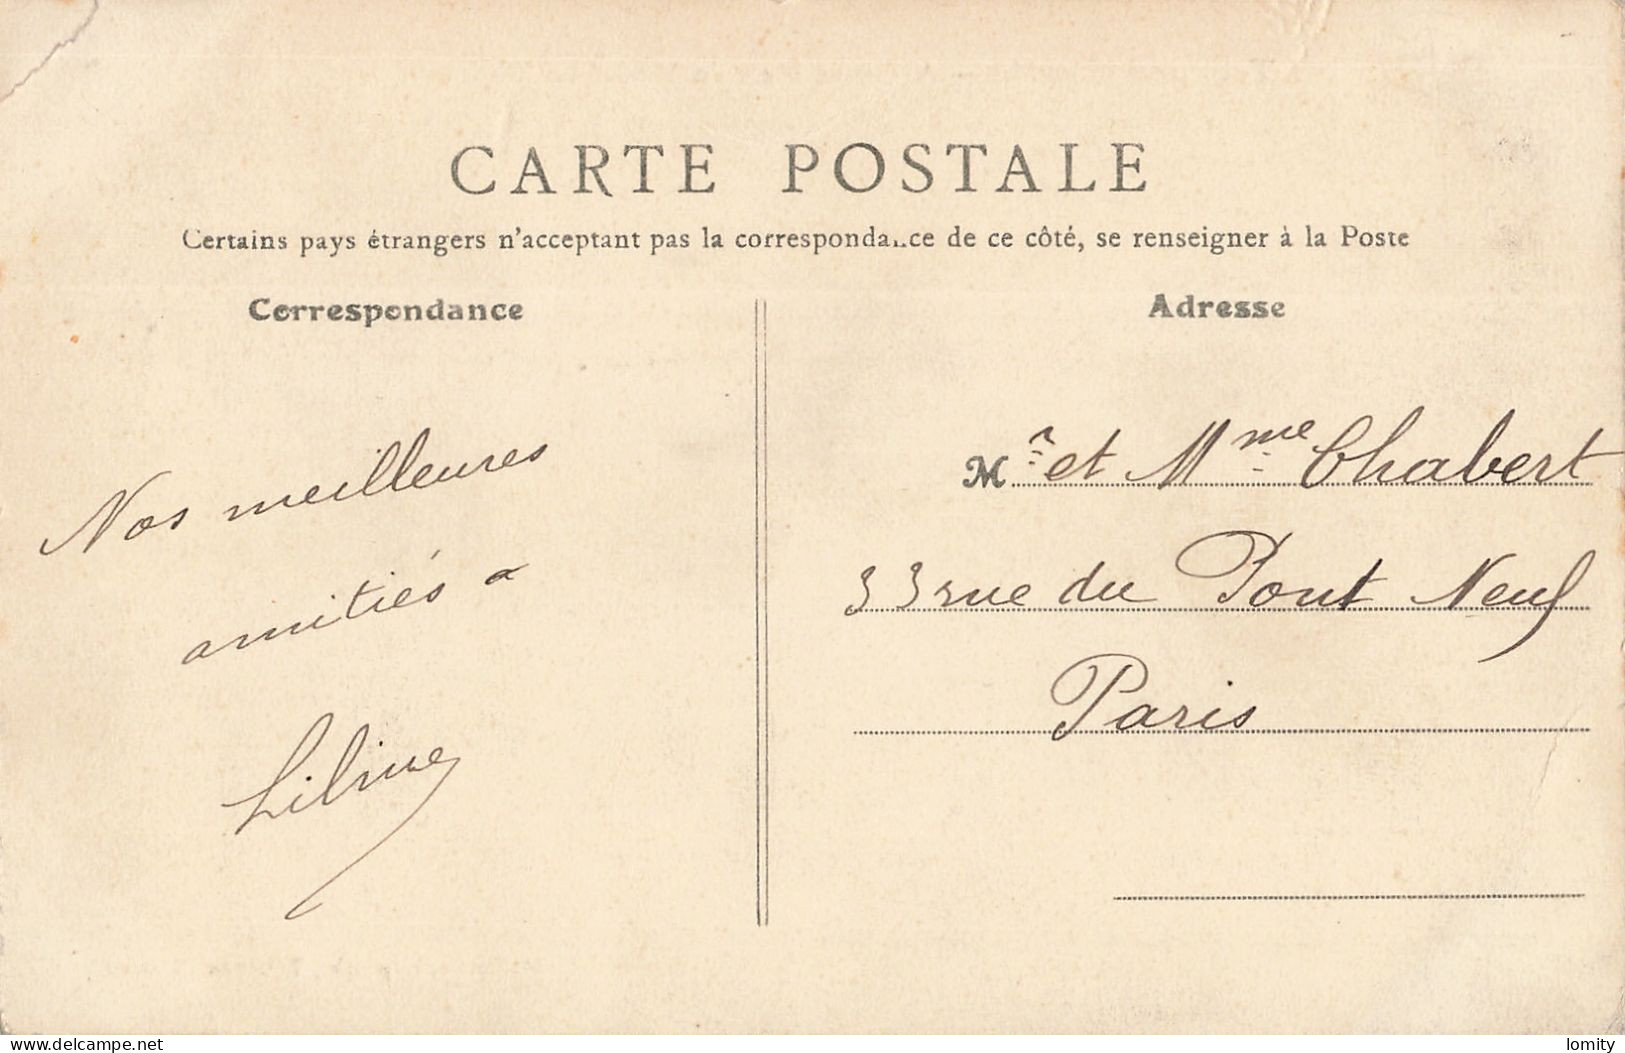 CARTE POSTALE
Certains pays étrangers n'acceptant pas la correspondance de ce côté, se renseigner à la Poste
Correspondance
Nos meilleures
amitiés a
Liline
Adresse
Mr et Mme Chabert
33 rue du Pont Neuf
Paris
www.delcampe.net
lomity